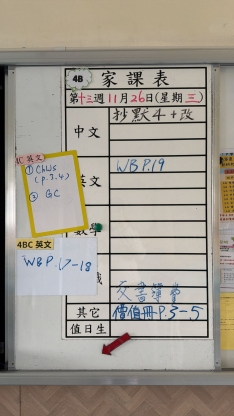 4B 家課表
第十三週11月26日(星期三)
中文 抄默4+改
4C 英文
① Chus
(p.2.4)
② GC
英文 WB P.19
數學
4BC 英文
WB P.17-18
其它 價值冊P.3-5
值日生